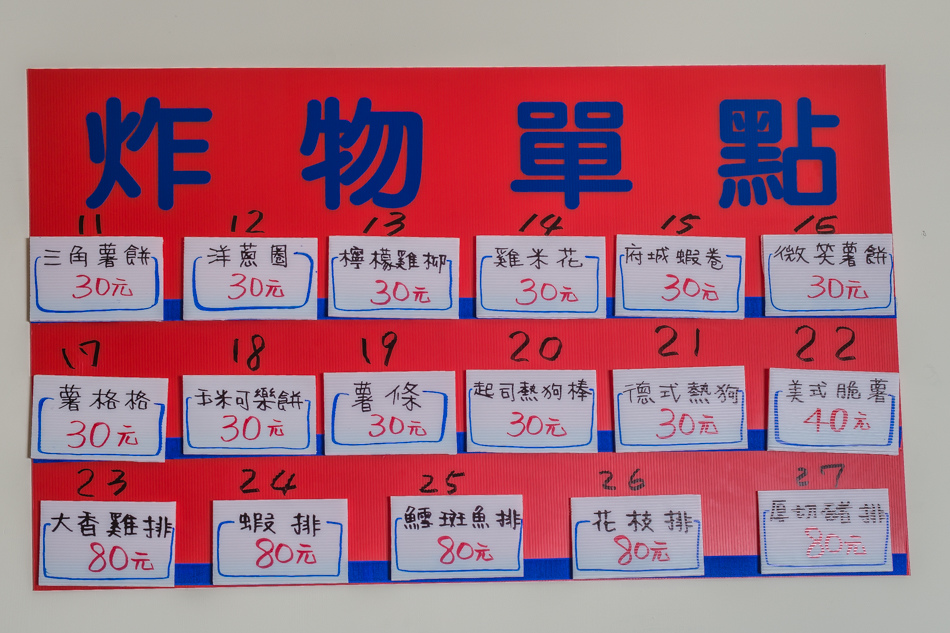 炸物單點
11 12 13 14 15 16
三角薯餅 洋蔥圈 檸檬雞柳 雞米花 府城蝦卷 微笑薯餅
30元 30元 30元 30元 30元 30元
17 18 19 20 21 22
薯格格 玉米可樂餅 薯條 起司熱狗棒 德式熱狗 美式脆薯
30元 30元 30元 30元 30元 40元
23 24 25 26 27
大香雞排 蝦排 鱈斑魚排 花枝排 厚切豬排
80元 80元 80元 80元 80元